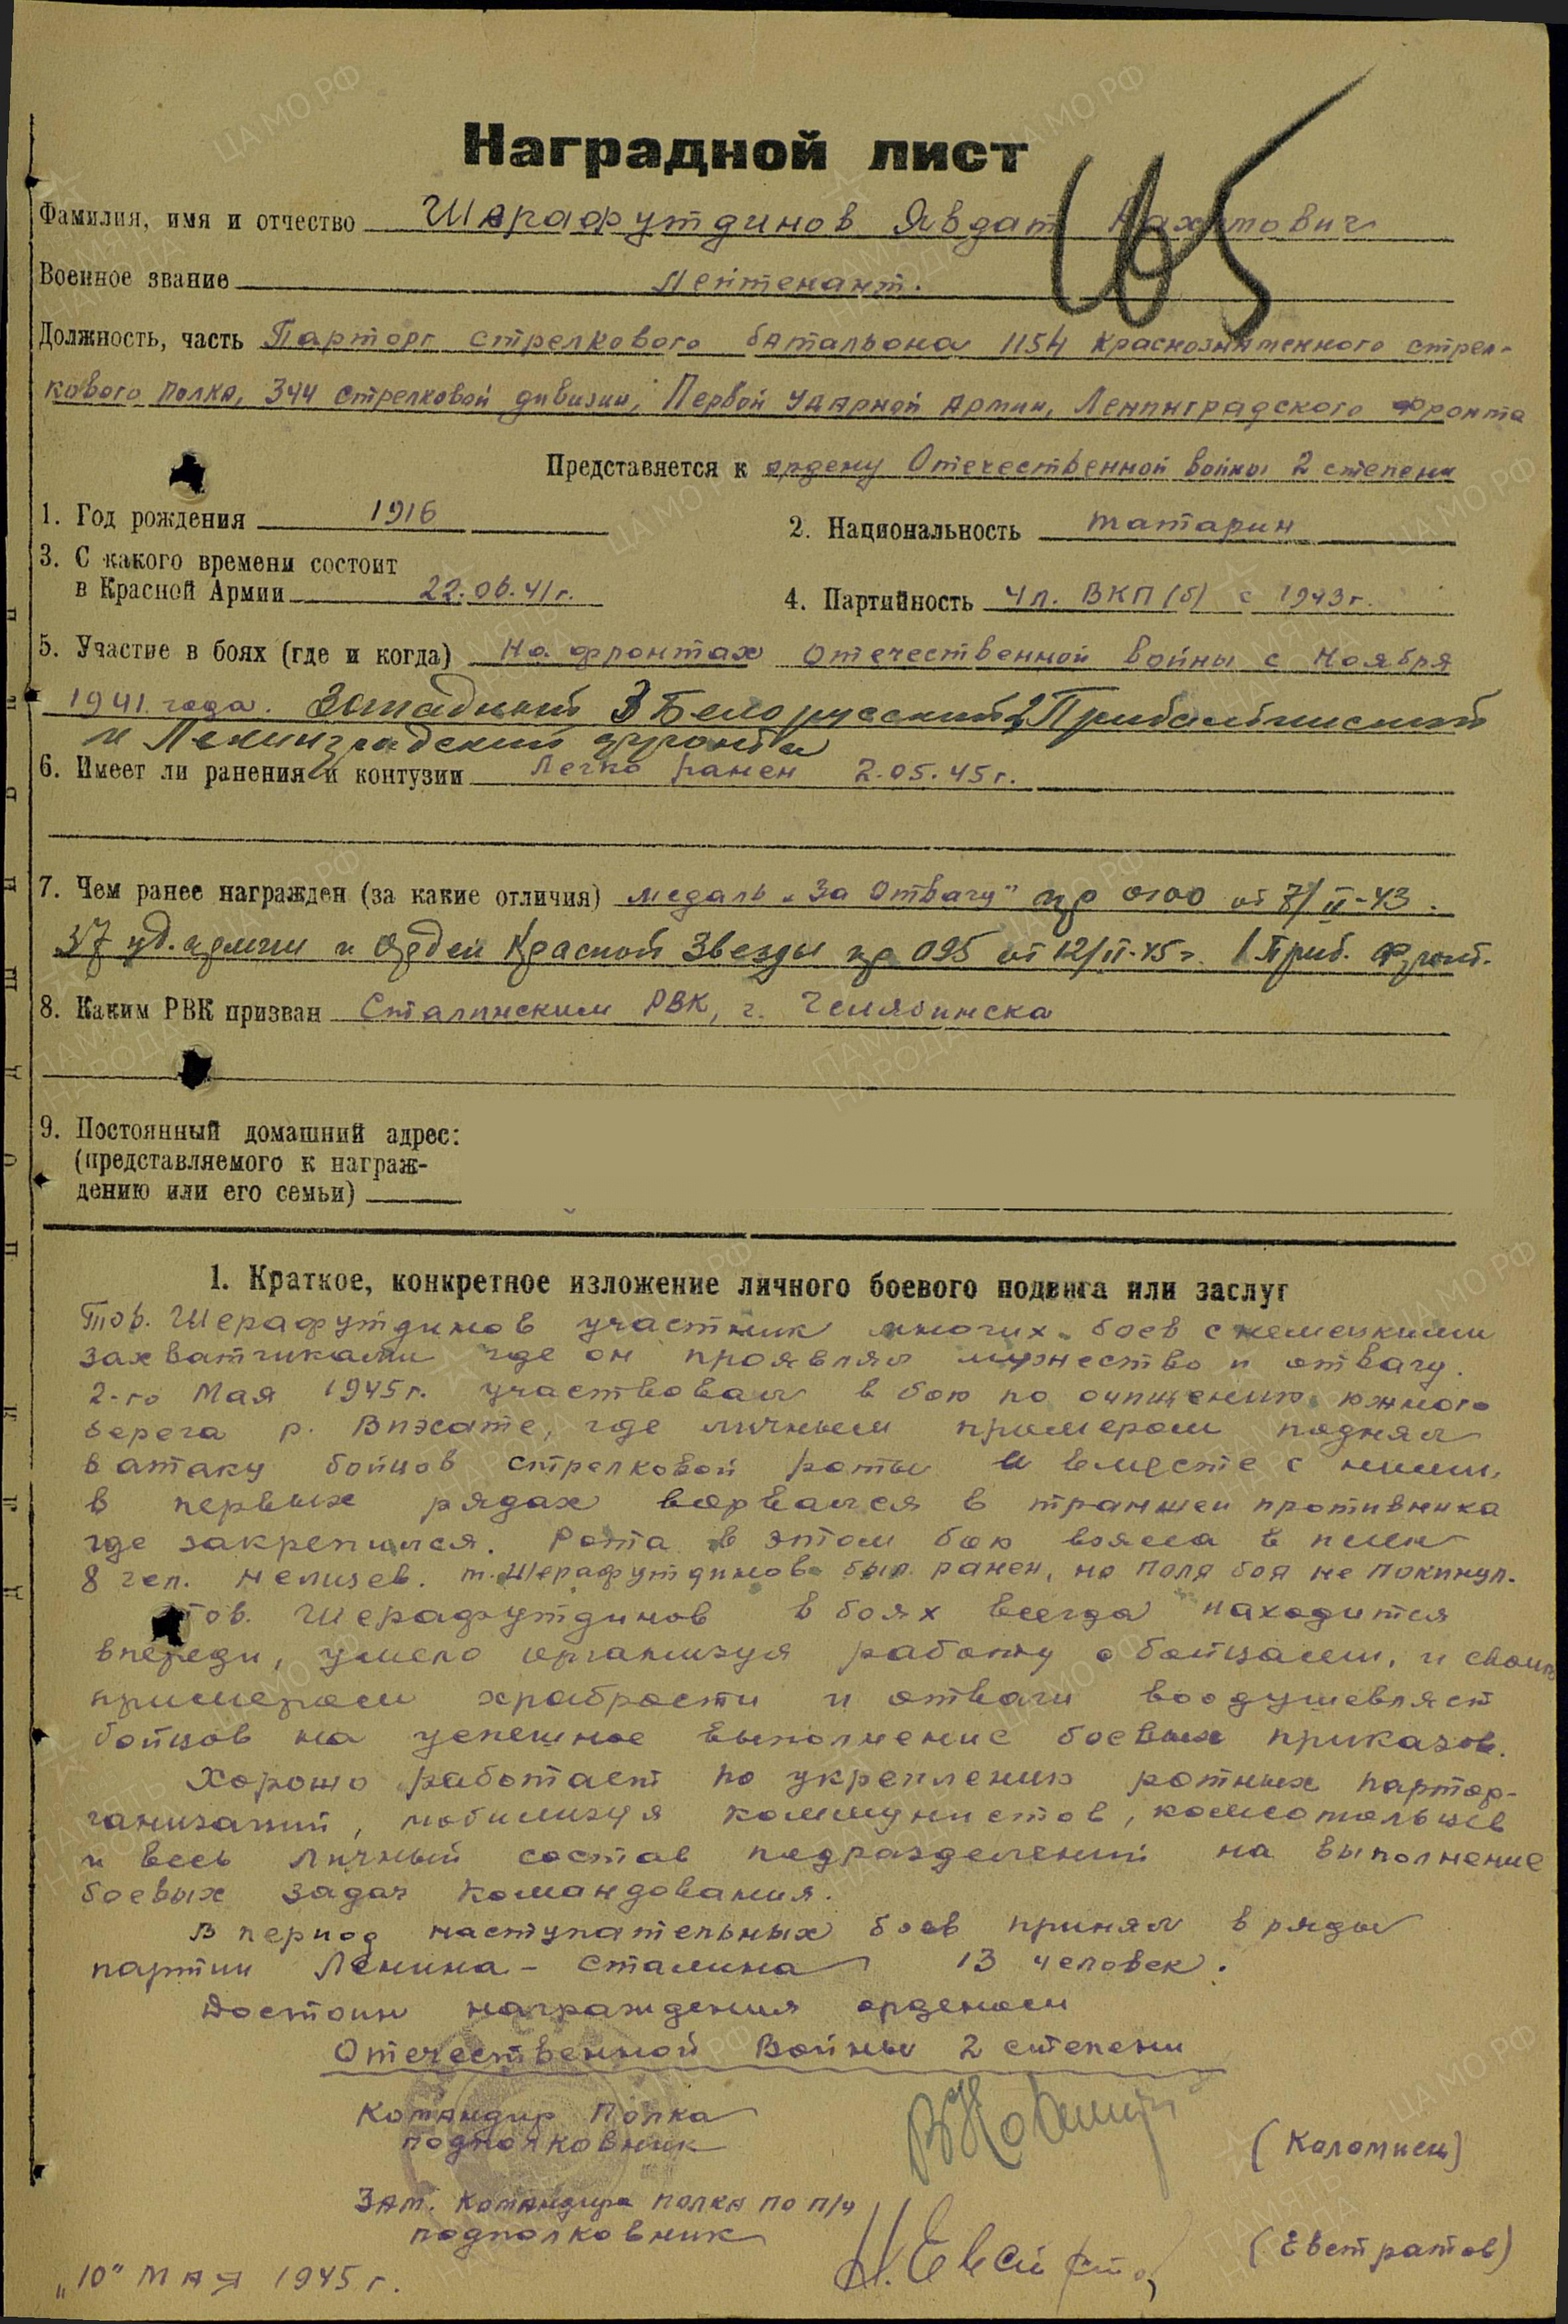 Наградной лист
165
Фамилия, имя и отчество Шарафутдинов Явдат
Военное звание Лейтенант.
Должность, часть Парторг стрелкового батальона 1154 краснознаменного стрел-
кового полка, 344 стрелковой дивизии, Первой Ударной Армии, Ленинградского фронта
Представляется к ордену Отечественной войны 2 степени
1. Год рождения 1916
2. Национальность татарин
3. С какого времени состоит
в Красной Армии 22.06.41г.
4. Партийность чл. ВКП(б) с 1943г.
5. Участие в боях (где и когда) На фронтах Отечественной войны с ноября
1941 года. Западный 3 Белорусский 2 Прибалтийский
и Ленинградский фронта
6. Имеет ли ранения и контузии Легко ранен 2.05.45г.
7. Чем ранее награжден (за какие отличия) медаль „За Отвагу" пр 0100 от 7/II-43.
уд. армии и Орден Красной Звезды пр 095 от 12/II-45г. 1 Приб. фронт.
8. Каким РВК призван Сталинским РВК, г. Челябинска
9. Постоянный домашний адрес:
(представляемого к награж-
дению или его семьи)
1. Краткое, конкретное изложение личного боевого подвига или заслуг
Тов. Шерафутдинов участник многих боев с немецкими
захватчиками где он проявлял мужество и отвагу.
2-го Мая 1945г. участвовал в бою по очищению южного
берега р. где личным примером поднял
в атаку бойцов стрелковой роты и вместе с ними,
в первых рядах ворвался в траншеи противника
где закрепился. Рота в этом бою взяла в плен
8 чел. немцев. т. Шерафутдинов был ранен, но поля боя не покинул.
тов. Шерафутдинов в боях всегда находится
впереди, умело организуя работу с бойцами, и своим
примером храбрости и отваги воодушевляет
бойцов на успешное выполнение боевых приказов.
Хорошо работает по укреплению ротных партор-
ганизаций, мобилизуя коммунистов, комсомольцев
и весь личный состав подразделений на выполнение
боевых задач командования.
В период наступательных боев принял в ряды
партии Ленина - Сталина 13 человек.
Достоин награждения орденом
Отечественной Войны 2 степени
Командир Полка
подполковник
(Коломиец)
Зам. Командира полка по п/ч
подполковник
Н. Евстратов
(Евстратов)
„10" мая 1945 г.
ЦАМО.РФ
ПАМЯТЬ
НАРОДА